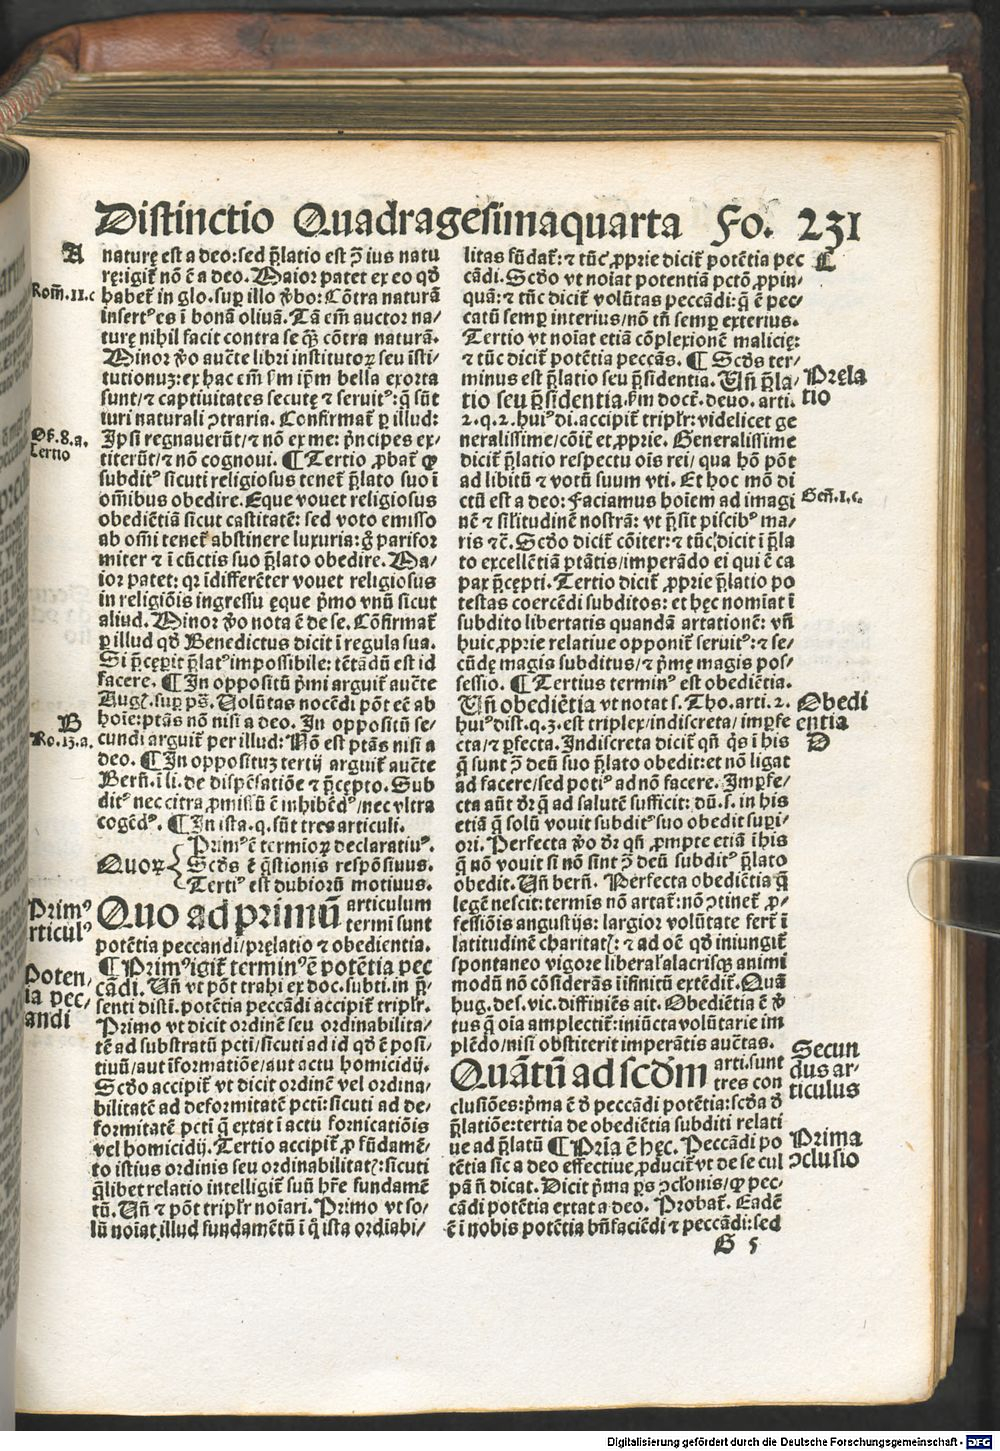 Distinctio Quadragesimaquarta Fo. 231
A
naturę est a deo: sed p̄latio est ꝯ̄ ius natu
rę: igit᷑ nō ē a deo. Maior patet ex eo qđ
Rom̄. 11. c
habet᷑ in glo. suꝑ illo ꝟbo: Cōtra naturā
insertꝰ es ī bonā olivā. Tā em̄ auctor na-
turę nihil facit contra se qͣꝫ cōtra naturā.
Minor ꝟo auc̄te libri institutoꝝ seu īsti-
tutionuꝫ: ex hac em̄ ẜm ip̄m bella exorta
sunt / ⁊ captiuitates secutę ⁊ seruitꝰ: q̄ sūt
iuri naturali ꝯtraria. Confirmat᷑ ꝑ illud:
Os. 8. a.
Ipsi regnauerūt / ⁊ nō ex me: p̄ncipes ex-
Tertio
titerūt / ⁊ nō cognoui. ¶ Tertio ꝓbat᷑ ꝙ
subditꝰ sicuti religiosus tenet᷑ p̄lato suo ī
om̄ibus obedire. Eque vouet religiosus
obediētiā sicut castitatē: sed voto emisso
ab om̄i tenet᷑ abstinere luxuria: g̊ parifor
miter ⁊ ī cūctis suo p̄lato obedire. Ma-
ior patet: qꝛ īdifferēter vouet religiosus
in religiōis ingressu ęque p̄mo vnū sicut
aliud. Minor ꝟo nota ē de se. Cōfirmat᷑
ꝑ illud qđ Benedictus dicit ī regula sua.
Si p̄ceꝑit p̄latꝰ impossibile: tētādū est id
facere. ¶ In oppositū p̄mi arguit᷑ auc̄te
Augꝰ. suꝑ ps̄. Volūtas nocēdi pōt eē ab
B
hoīe: ptās nō nisi a deo. In oppositū se-
Ro. 13. a.
cundi arguit᷑ per illud: Nō est ptās nisi a
deo. ¶ In opposituꝫ tertij arguit᷑ auc̄te
Bern̄. ī li. de dispēsatiōe ⁊ p̄cepto. Sub
ditꝰ nec citra ꝓmissū ē inhibēdꝰ / nec vltra
cogēdꝰ. ¶ In ista. q. sūt tres articuli.
Quoꝝ
Primꝰ ē termioꝝ declaratiuꝰ.
Scđs ē q̄stionis respōsiuus.
Tertiꝰ est dubiorū motiuus.
Primꝰ
rticulꝰ
Quo ad primū articulum
termi sunt
potētia peccandi / pręlatio ⁊ obedientia.
Poten-
tia pec-
andi
¶ Primꝰ igit᷑ terminꝰ ē potētia pec
cādi. Vn̄ vt pōt trahi ex doc. subti. in p̄-
senti disti. potētia peccādi accipit᷑ triplr̄.
Primo vt dicit ordinē seu ordinabilita-
tē ad substratū pcti / sicuti ad id qđ ē posi-
tiuū / aut īformatiōe / aut actu homicidij.
Scđo accipit᷑ vt dicit ordinē vel ordina-
bilitatē ad deformitatē pcti: sicuti ad de-
formitatē pcti q̄ extat ī actu fornicatiōis
vel homicidij. Tertio accipit᷑ ꝓ fūdamē-
to istius ordinis seu ordinabilitatꝭ: sicuti
q̄libet relatio intelligit᷑ suū hr̄e fundamē
tū. Vn̄ ⁊ pōt triplr̄ noīari. Primo vt so-
lū noīat illud fundamētū ī q̊ ista ordīabi-
litas fūdat᷑: ⁊ tūc ꝓprie dicit᷑ potētia pec
C
cādi. Scđo vt noīat potentiā pctō ꝓpin-
quā: ⁊ tūc dicit᷑ volūtas peccādi: q̄ ē pec-
catū semꝑ interius / nō tn̄ semꝑ exterius.
Tertio vt noīat etiā cōplexionē malicię:
⁊ tūc dicit᷑ potētia peccās. ¶ Scđs ter-
minus est p̄latio seu p̄sidentia. Vn̄ p̄la-
Pręla
tio
tio seu p̄sidentia. ẜm doct̄. deuo. arti.
2. q. 2. huiꝰ di. accipit᷑ triplr̄: videlicet ge
neralissime / cōit᷑ et ꝓprie. Generalissime
dicit᷑ p̄latio respectu oīs rei / qua hō pōt
ad libitū ⁊ votū suum vti. Et hoc mō di
ctū est a deo: Faciamus hoīem ad imagi
Gen̄. 1. c.
nē ⁊ silitudinē nostrā: vt p̄sit piscibꝰ ma-
ris ⁊ c̄. Scđo dicit᷑ cōiter: ⁊ tūc dicit ī p̄la
to excellētiā ptātis / imperādo ei qui ē ca
pax p̄cepti. Tertio dicit᷑ ꝓprie p̄latio po
testas coercēdi subditos: et hęc nomīat ī
subdito libertatis quandā artationē: vn̄
huic ꝓprie relatiue opponit᷑ seruitꝰ: ⁊ se-
cūdę magis subditus / ⁊ p̄mę magis pos-
sessio. ¶ Tertius terminꝰ est obediētia.
Vn̄ obediētia vt notat s. Tho. arti. 2.
Obedi
entia
huiꝰ dist. q. 3. est triplex / indiscreta / imꝑfe
D
cta / ⁊ ꝑfecta. Indiscreta dicit᷑ qn̄ q̇s ī his
q̄ sunt ꝯ̄ deū suo p̄lato obedit: et nō ligat
ad facere / sed potiꝰ ad nō facere. Imꝑfe-
cta aūt dr̄ q̄ ad salutē sufficit: dū. s. in his
etiā q̄ solū vouit subditꝰ suo obedit suꝑi-
ori. Perfecta ꝟo dr̄ qn̄ ꝓmpte etiā ī his
q̄ nō vouit si nō sint ꝯ̄ deū subditꝰ p̄lato
obedit. Vn̄ bern̄. Perfecta obediētia q̄
legē nescit: termīs nō artat᷑: nō ꝯtinet᷑ ꝓ-
fessiōis angustijs: largior volūtate fert᷑ ī
latitudinē charitatꝭ: ⁊ ad oē qđ iniungit᷑
spontaneo vigore liberal̓ alacrisqꝫ animi
modū nō cōsiderās ī ifinitū extēdit᷑. Quā
hug. de s. vic. diffiniēs ait. Obediētia ē ꝟ
tus q̄ oīa amplectit᷑: iniūcta volūtarie im
plēdo / nisi obstiterit imperātis auc̄tas.
Quātū ad scđm arti. sunt
tres con
Secun
dus ar-
ticulus
clusiōes: p̄ma ē đ peccādi potētia: scđa đ
p̄latiōe: tertia de obediētia subditi relati
ue ad p̄latū ¶ Pr̄ia ē hęc. Peccādi po
Prima
ꝯclusio
tētia sic a deo effectiue ꝓducit᷑ vt de se cul
pā n̄ dicat. Dicit p̄ma ꝑs ꝯclōnis / ꝙ pec-
cādi potētia extat a deo. Probat᷑. Eadē
ē ī nobis potētia bn̄faciēdi ⁊ peccādi: sed
G 5
Digitalisierung gefördert durch die Deutsche Forschungsgemeinschaft - DFG